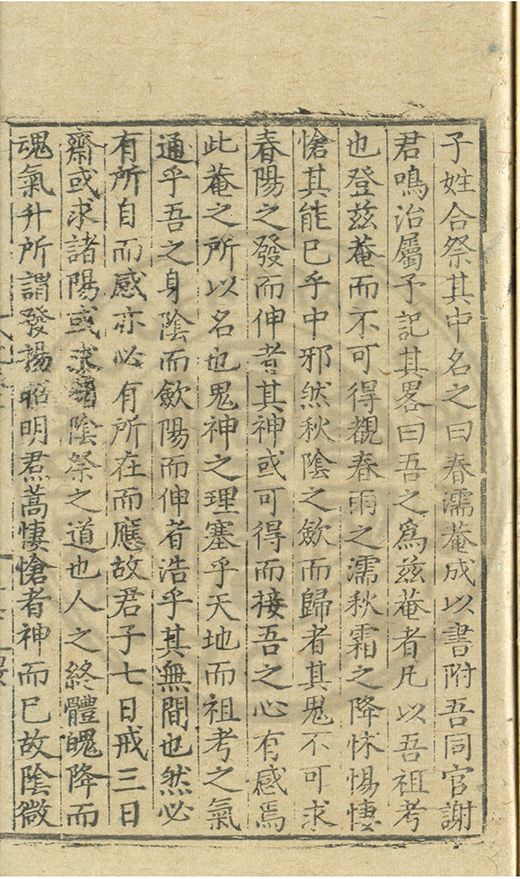 子姓合祭其中名之曰春濡菴成以書附吾同官謝
君鳴治屬予記其畧曰吾之爲茲菴者凡以吾祖考
也登茲菴而不可得覩春雨之濡秋霜之降怵惕悽
愴其能已乎中邪然秋陰之斂而歸者其鬼不可求
春陽之發而伸者其神或可得而接吾之心有感焉
此菴之所以名也鬼神之理塞乎天地而祖考之氣
通乎吾之身陰而斂陽而伸者浩乎其無間也然必
有所自而感亦必有所在而應故君子七日戒三日
齋或求諸陽或求諸陰祭之道也人之終體魄降而
魂氣升所謂發揚昭明焄蒿悽愴者神而已故陰微